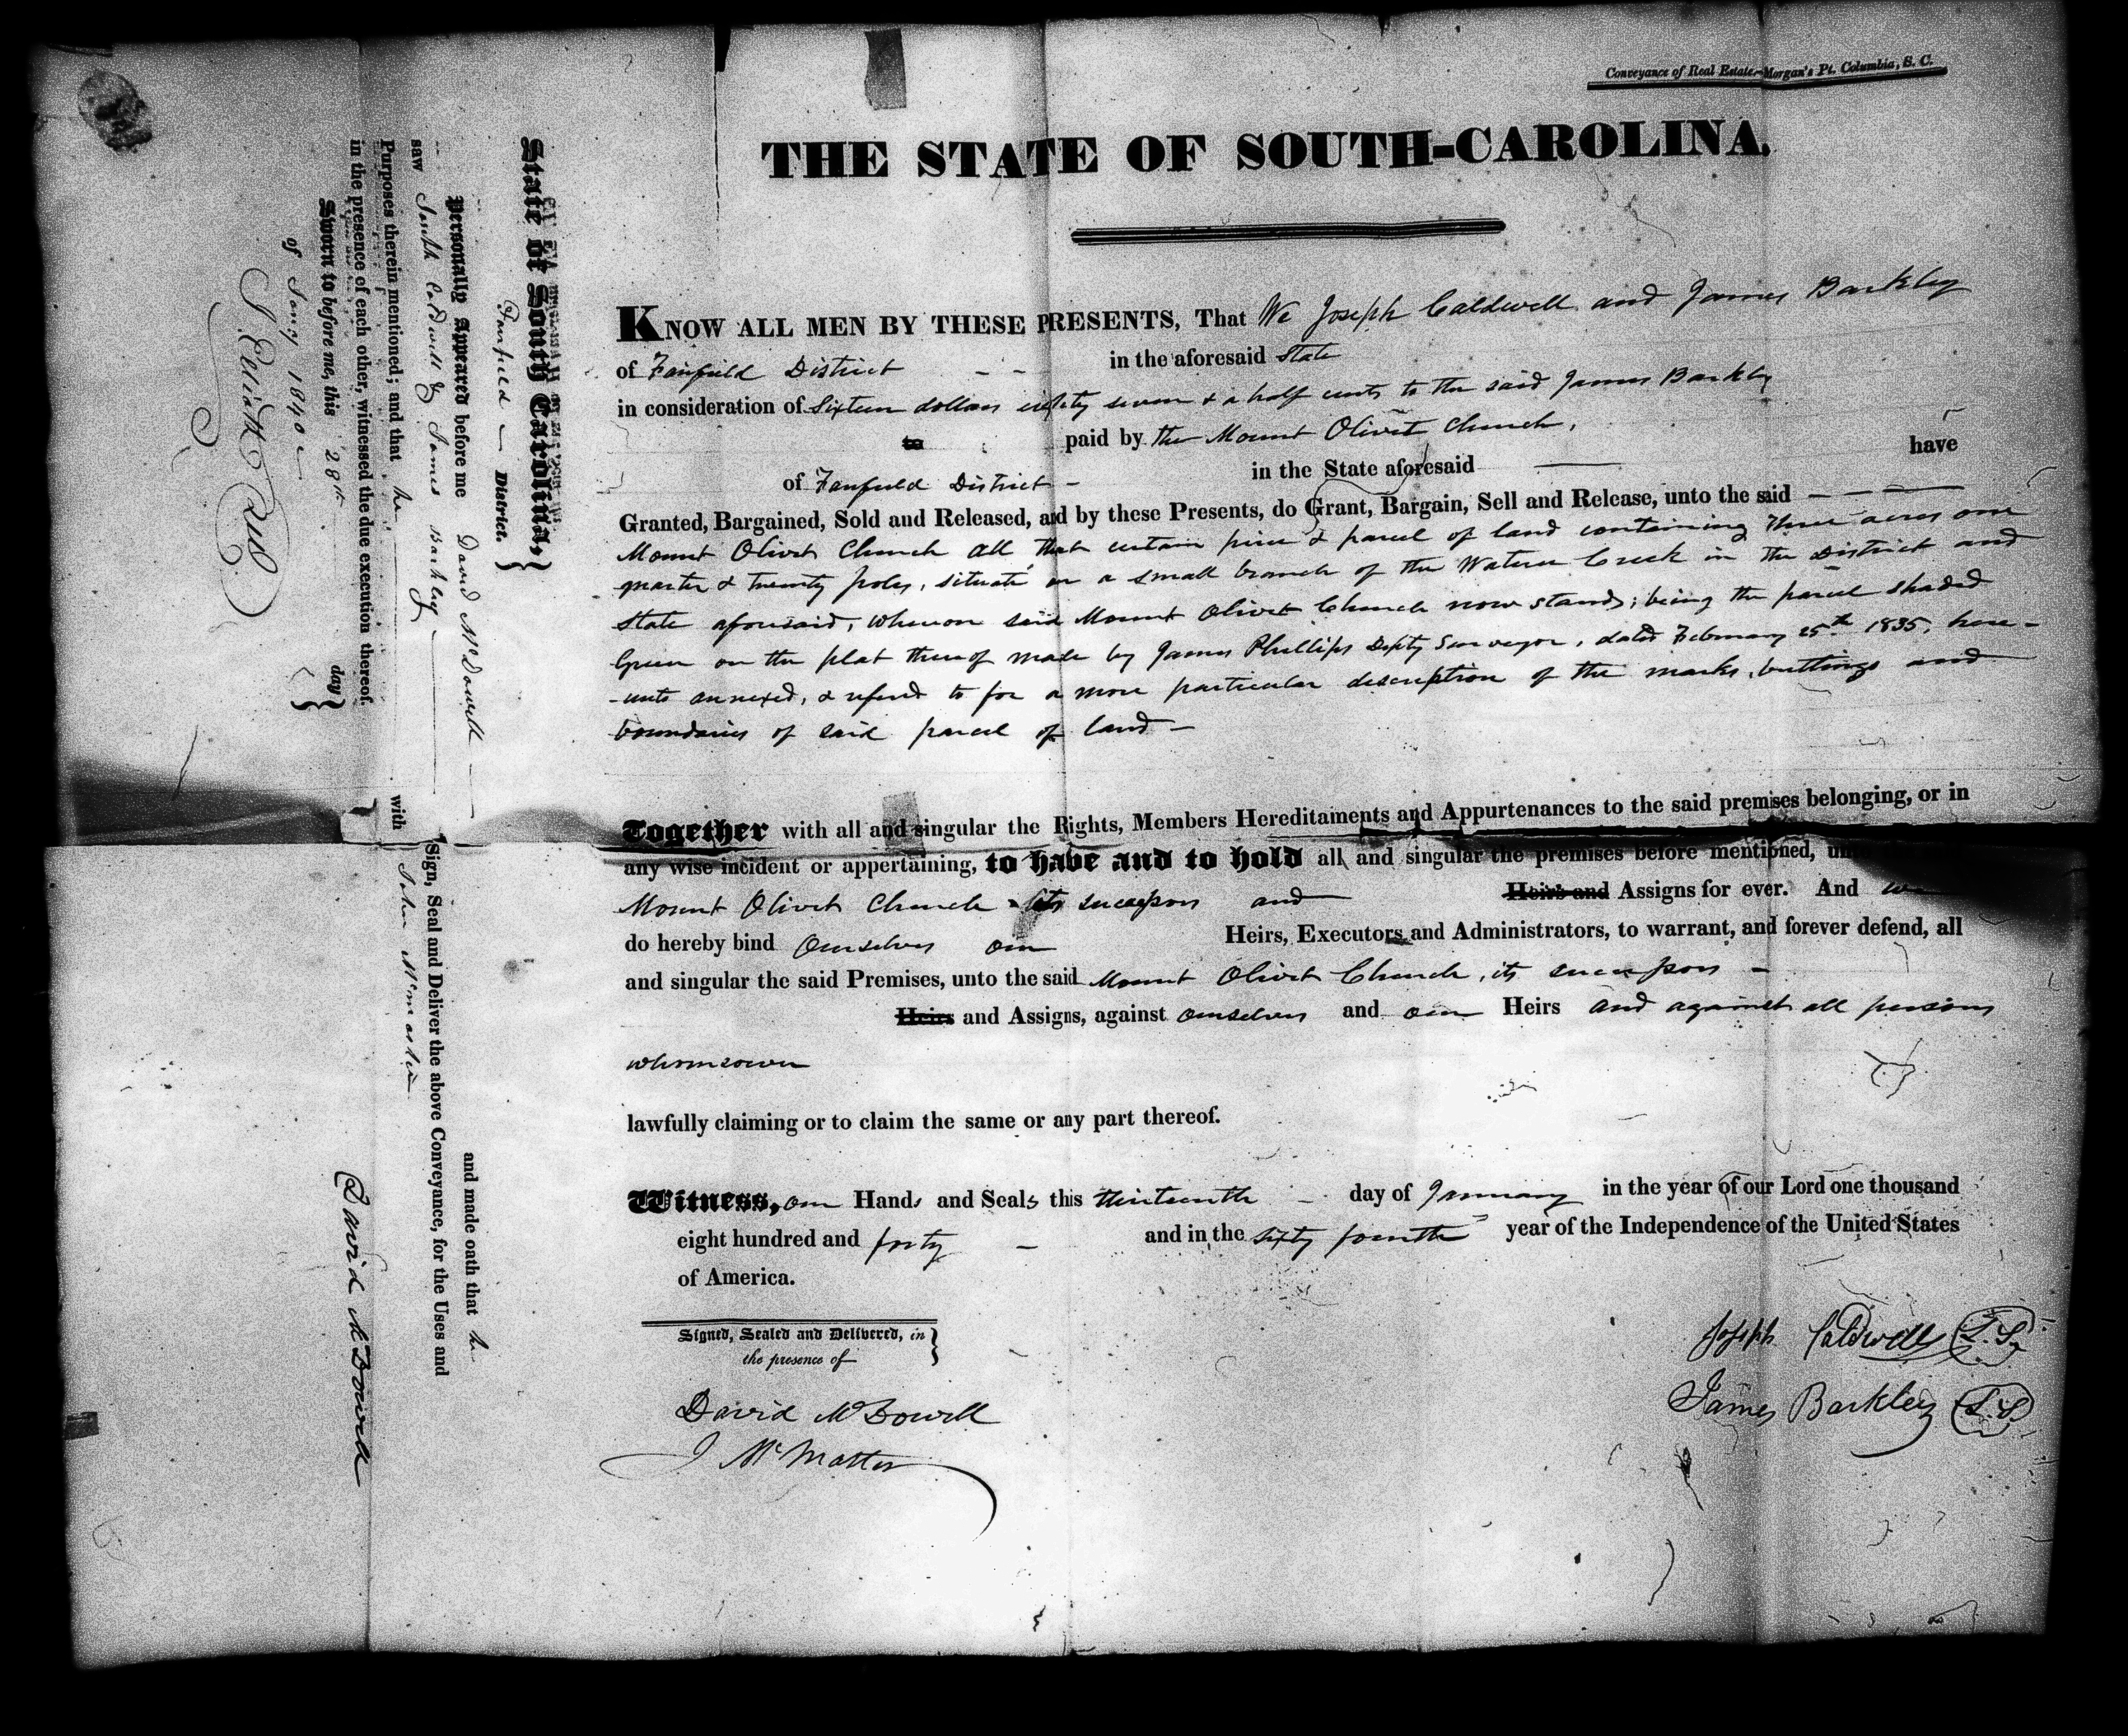 Conveyance of Real Estate—Morgan's Pt. Columbia, S. C.
THE STATE OF SOUTH-CAROLINA.
KNOW ALL MEN BY THESE PRESENTS, That We Joseph Caldwell and James Barkley
of Fairfield District - - in the aforesaid State
in consideration of Sixteen dollars eighty seven & a half cents to the said James Barkley
to paid by the Mount Olivet Church,
of Fairfield District - in the State aforesaid — have
Granted, Bargained, Sold and Released, and by these Presents, do Grant, Bargain, Sell and Release, unto the said — — —
Mount Olivet Church all that certain piece & parcel of land containing three acres one
quarter & twenty poles, situate on a small branch of the Wateree Creek in the District and
State aforesaid, whereon said Mount Olivet Church now stands; being the parcel shaded
Green on the plat thereof made by James Phillips Depty Surveyor, dated February 25th 1835, here-
-unto annexed, & referd to for a more particular description of the marks, buttings and
boundaries of said parcel of land —
Together with all and singular the Rights, Members Hereditaments and Appurtenances to the said premises belonging, or in
any wise incident or appertaining, to have and to hold all and singular the premises before mentioned,
Mount Olivet Church its successors and Heirs and Assigns for ever. And we
do hereby bind Ourselves our Heirs, Executors and Administrators, to warrant, and forever defend, all
and singular the said Premises, unto the said Mount Olivet Church, its successors -
Heirs and Assigns, against ourselves and our Heirs and against all persons
whomsoever
lawfully claiming or to claim the same or any part thereof.
Witness, our Hands and Seals this thirteenth - day of January in the year of our Lord one thousand
eight hundred and forty - and in the sixty fourth year of the Independence of the United States
of America.
Signed, Sealed and Delivered, in
the presence of
David McDowell
J McMaster
Joseph Caldwell (L.S.)
James Barkley (L.S.)
State of South Carolina,
Fairfield — District.
Personally Appeared before me David McDowell — and made oath that he
saw Joseph Caldwell & James Barkley — Sign, Seal and Deliver the above Conveyance, for the Uses and
Purposes therein mentioned; and that he with John McMaster
in the presence of each other, witnessed the due execution thereof.
Sworn to before me, this 28th day
of Jany 1840
David McDowell